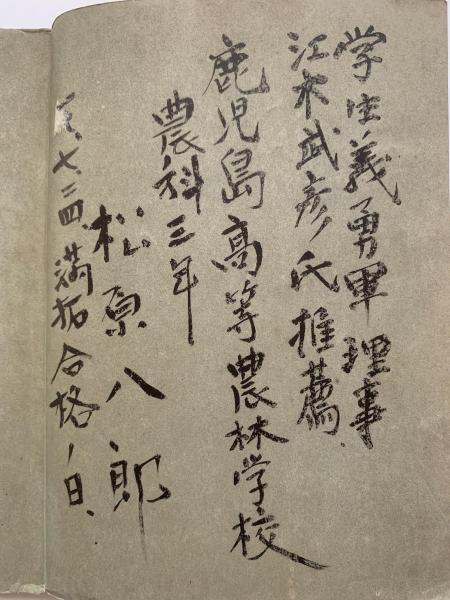 学生義勇軍理事
江木武彦氏推薦
鹿児島高等農林学校
農科三年
松原八郎
七.二四、満拓合格ノ日、